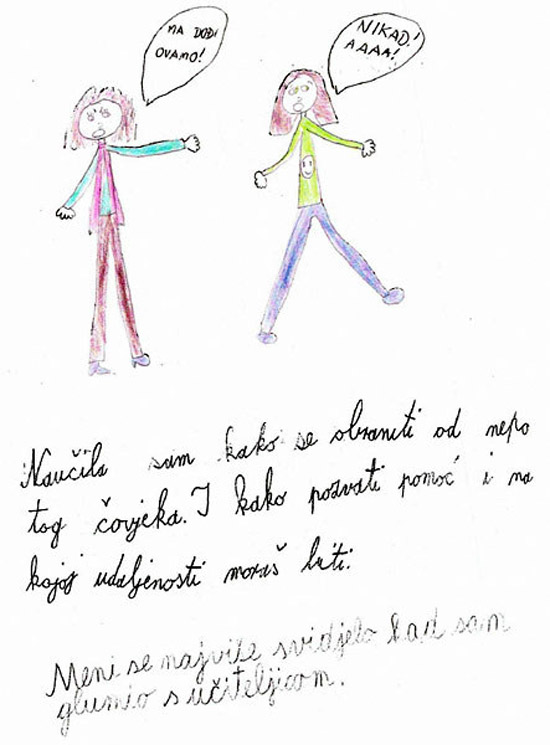 MA DOĐI
OVAMO!
NIKAD!
AAAA!
Naučila sam kako se obraniti od nepo
tog čovjeka. I kako pozvati pomoć i na
kojoj udaljenosti moraš biti.
Meni se najviše svidjelo kad sam
glumio s učiteljicom.